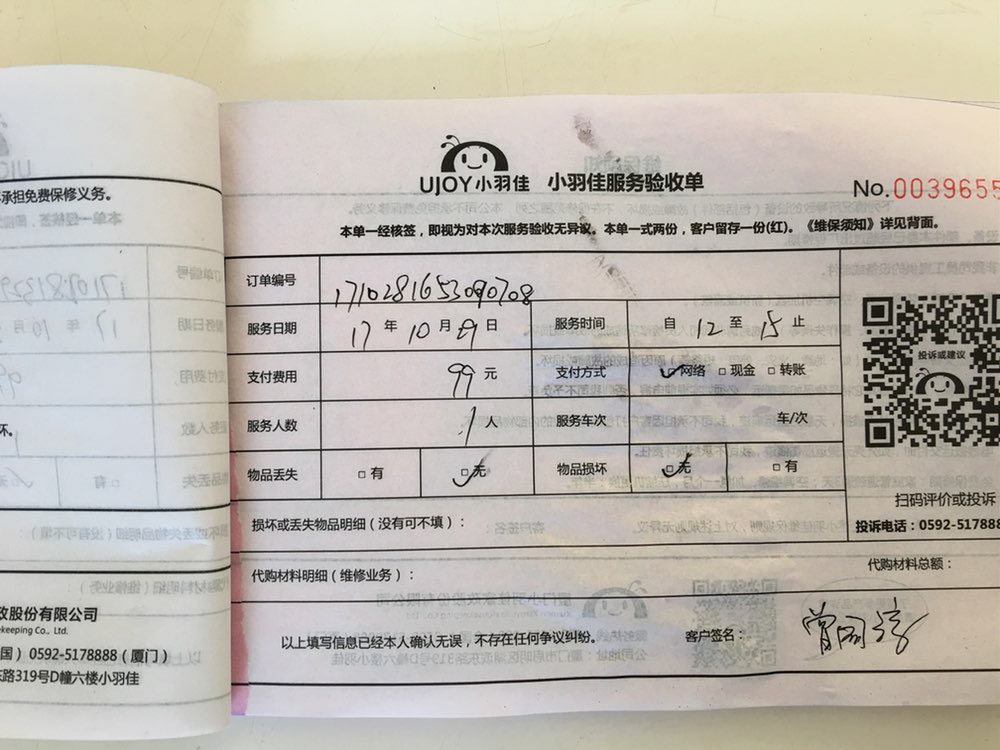 UJOY小羽佳 小羽佳服务验收单
No.0039655
本单一经核签，即视为对本次服务验收无异议。本单一式两份，客户留存一份(红)。《维保须知》详见背面。
订单编号 1710281653090708
服务日期 17 年 10 月 29 日 服务时间 自 12 至 15 止
支付费用 99 元 支付方式 网络 □ 现金 □ 转账
服务人数 1 人 服务车次 车/次
物品丢失 □ 有 □ 无 物品损坏 □ 无 □ 有
投诉或建议
扫码评价或投诉
投诉电话：0592-517888
损坏或丢失物品明细（没有可不填）：
代购材料明细（维修业务）：
代购材料总额：
以上填写信息已经本人确认无误，不存在任何争议纠纷。 客户签名：
承担免费保修义务。
坏。
政股份有限公司
keeping Co., Ltd.
国） 0592-5178888（厦门）
东路319号D幢六楼小羽佳